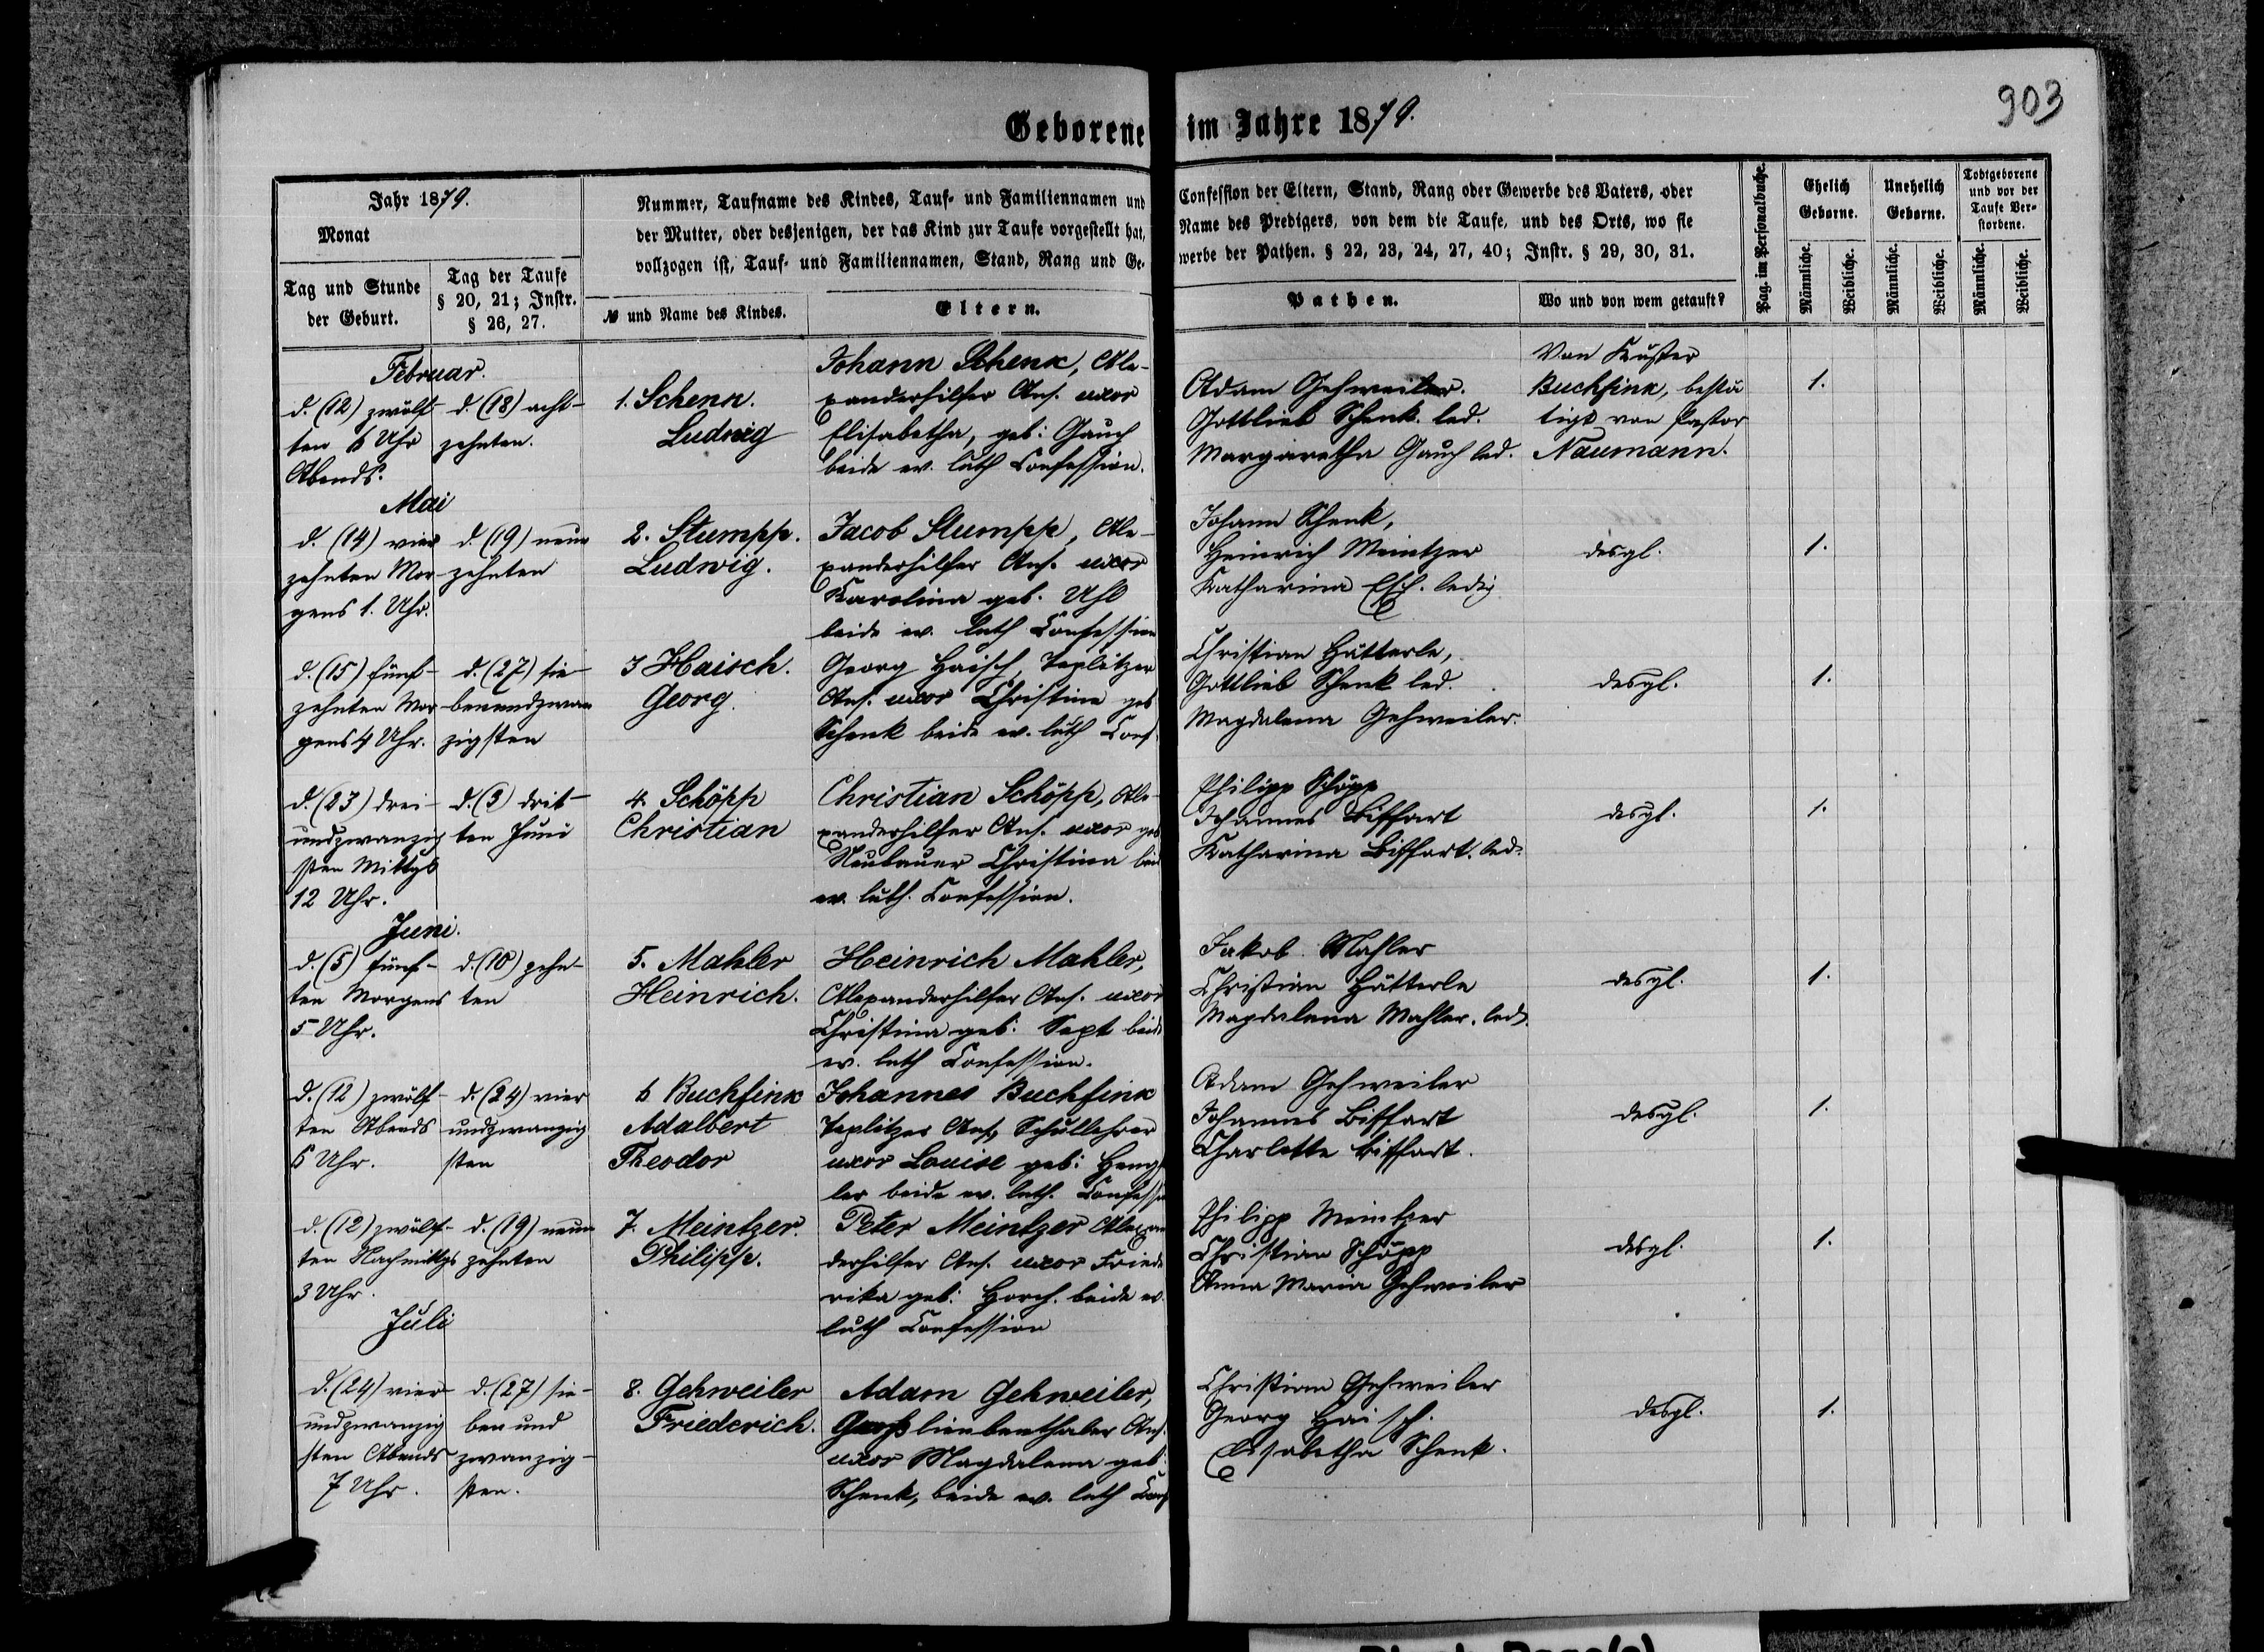 903
Geborene im Jahre 1879.
Jahr 1879.
Monat
Tag und Stunde
der Geburt.
Tag der Taufe
§ 20, 21; Instr.
§ 26, 27.
Nummer, Taufname des Kindes, Tauf- und Familiennamen und
der Mutter, oder desjenigen, der das Kind zur Taufe vorgestellt hat,
vollzogen ist, Tauf- und Familiennamen, Stand, Rang und Ge-
№ und Name des Kindes.
Eltern.
Confession der Eltern, Stand, Rang oder Gewerbe des Vaters, oder
Name des Predigers, von dem die Taufe, und des Orts, wo sie
werbe der Pathen. § 22, 23, 24, 27, 40; Instr. § 29, 30, 31.
Pathen.
Wo und von wem getauft?
Pag. im Personalbuche.
Ehelich
Geborne.
Unehelich
Geborne.
Todtgeborene
und vor der
Taufe Ver-
storbene.
Männliche.
Weibliche.
Männliche.
Weibliche.
Männliche.
Weibliche.
Februar.
d. (12) zwölf-
ten 6 Uhr
Abends.
d. (18) acht-
zehnten.
1. Schenk.
Ludwig
Johann Schenk, Ale-
xanderhilfer Ans. uxor
Elisabetha, geb: Gauch
beide ev. luth Confession.
Adam Gehweiler.
Gottlieb Schenk. led.
Margaretha Gauch led.
Von Küster
Buchfink, bestä
tigt von Pastor
Naumann.
1.
Mai
d. (14) vier
zehnten Mor-
gens 1. Uhr.
d. (19) neun
zehnten
2. Stumpp.
Ludwig.
Jacob Stumpp, Ale-
xanderhilfer Ans. uxor
Karolina geb. Uhl
beide ev. luth Confession
Johann Schenk,
Heinrich Meintzer
Katharina ledig
desgl.
1.
d. (15) fünf-
zehnten Mor
gens 4 Uhr.
d. (27) sie-
benundzwan
zigsten
3 Haisch.
Georg.
Georg Haisch, Teplitzer
Ans. uxor Christine geb
Schenk beide ev. luth Conf
Christian Hätterle,
Gottlieb Schenk led.
Magdalena Gehweiler.
desgl.
1.
d. (23) drei-
undzwanzig
sten Mittgs
12 Uhr.
d. (3) drit-
ten Juni
4. Schöpp
Christian
Christian Schöpp, Ale-
xanderhilfer Ans. uxor geb
Neubauer Christina bei
ev. luth. Confession.
Philipp Schöpp
Johannes Bissfart
Katharina Bissfart. led.
desgl.
1.
Juni.
d. (5) fünf-
ten Morgens
5 Uhr.
d. (10) zehn-
ten
5. Mahler
Heinrich.
Heinrich Mahler,
Alexanderhilfer Ans. uxor
Christina geb: Sept beide
ev. luth Confession.
Jakob Mahler
Christian Hätterle
Magdalena Mahler. led.
desgl.
1.
d. (12) zwölf-
ten Abends
6 Uhr.
d. (24) vier
undzwanzig
sten
6 Buchfink
Adalbert
Theodor
Johannes Buchfink
Teplitzer Ans, Schullehrer
uxor Louise geb: Heng
ler beide ev. luth. Confessi
Adam Gehweiler
Johannes Bissfart
Charlotte Bissfart.
desgl.
1.
d. (12) zwölf-
ten Nachmittgs
3 Uhr.
d. (19) neun
zehnten
7. Meintzer.
Philipp.
Peter Meintzer Alexan
derhilfer Ans. uxor Friede
rika geb: Horch. beide ev.
luth Confession
Philipp Meintzer
Christian Schöpp
Anna Maria Gehweiler
desgl.
1.
Juli
d. (24) vier
undzwanzig
sten Abends
7 Uhr.
d. (27) sie-
ben und
zwanzig-
sten.
8. Gehweiler
Friederich.
Adam Gehweiler,
Grossliebenthaler Ans.
uxor Magdalena geb:
Schenk, beide ev. luth Conf
Christian Gehweiler
Georg Haisch.
Elisabetha Schenk.
desgl.
1.